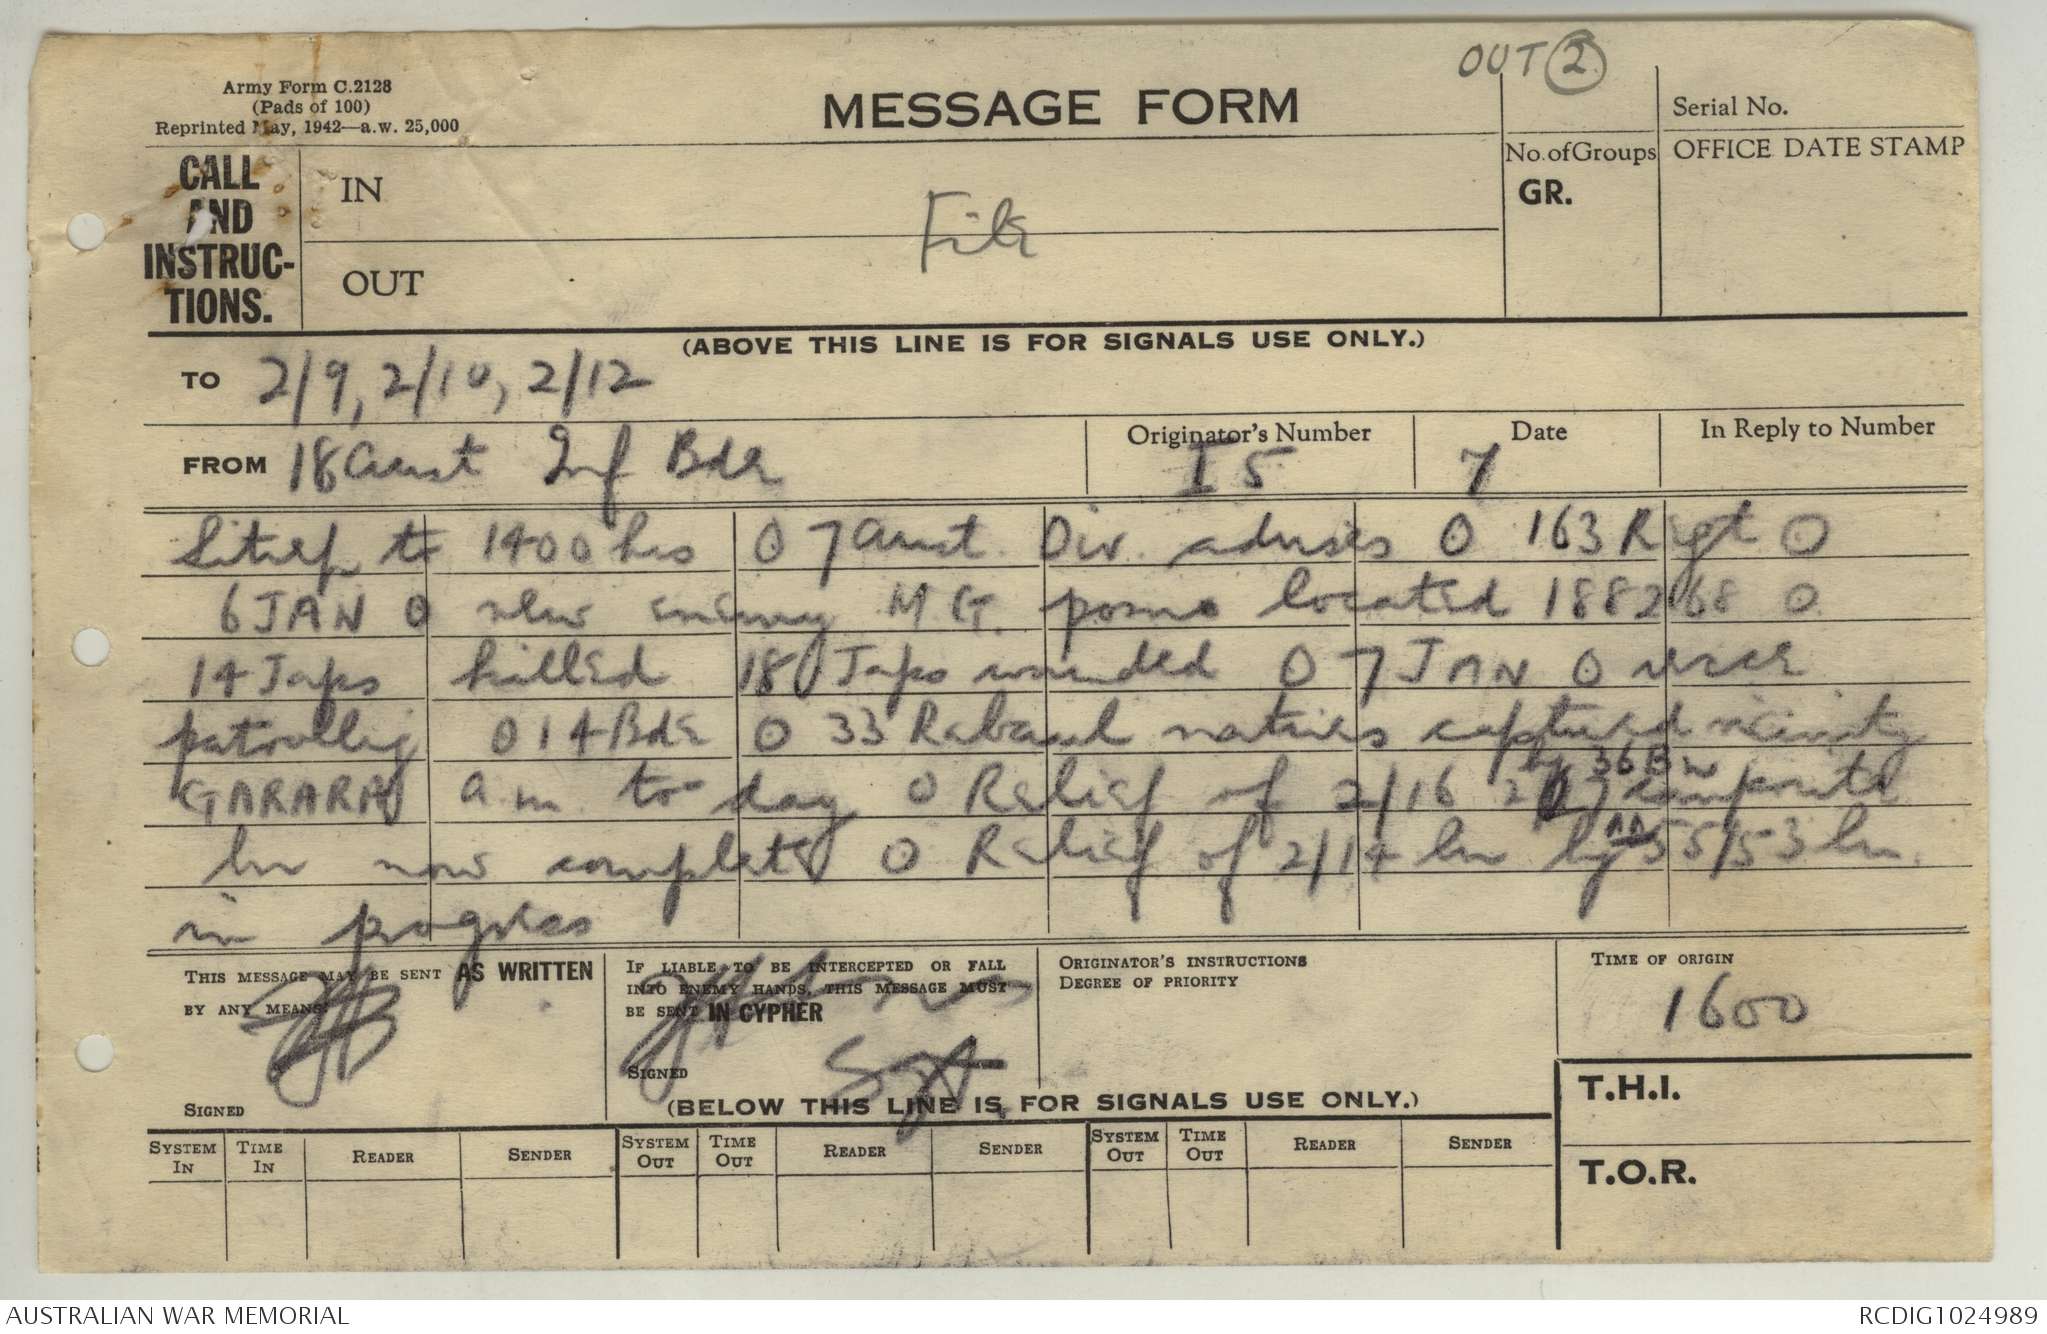 OUT 2
Army Form C.2128
(Pads of 100)
Reprinted May, 1942—a.w. 25,000
MESSAGE FORM
Serial No.
CALL AND INSTRUC-TIONS.
IN
OUT
File
No. of Groups
GR.
OFFICE DATE STAMP
(ABOVE THIS LINE IS FOR SIGNALS USE ONLY.)
TO 2/9, 2/10, 2/12
FROM 18 Aust Inf Bde
Originator's Number
I 5
Date
7
In Reply to Number
Sitrep to 1400 hrs 0 7 Aust Div. advises 0 163 Rgt 0
6 JAN 0 new enemy M.G. posns located 188268 0
14 Japs killed 18 Japs wounded 0 7 JAN 0
patrolling 0 14 Bde 0 33 Rabaul natives captured vicinity
by 36 Bn
GARARA a.m. to-day 0 Relief of 2/16 2/27 composite
bn now complete 0 Relief of 2/14 bn by 55/53 bn.
in progress
THIS MESSAGE MAY BE SENT AS WRITTEN
BY ANY MEANS.
SIGNED
IF LIABLE TO BE INTERCEPTED OR FALL
INTO ENEMY HANDS, THIS MESSAGE MUST
BE SENT IN CYPHER
SIGNED
Sgt
ORIGINATOR'S INSTRUCTIONS
DEGREE OF PRIORITY
TIME OF ORIGIN
1600
(BELOW THIS LINE IS FOR SIGNALS USE ONLY.)
T.H.I.
T.O.R.
SYSTEM IN TIME IN READER SENDER SYSTEM OUT TIME OUT READER SENDER SYSTEM OUT TIME OUT READER SENDER
AUSTRALIAN WAR MEMORIAL
RCDIG1024989